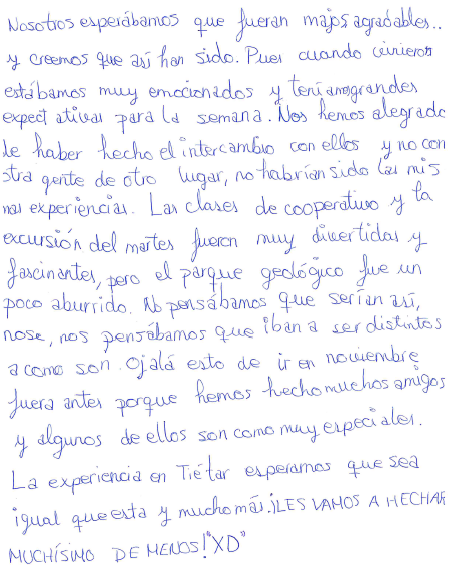 Nosotros esperábamos que fueran majos, agradables..
y creemos que así han sido. Pues cuando vinieron
estábamos muy emocionados y teníamos grandes
expectativas para la semana. Nos hemos alegrado
de haber hecho el intercambio con ellos y no con
otra gente de otro lugar, no habrían sido las mis
mas experiencias. Las clases de cooperativo y la
excursión del martes fueron muy divertidas y
fascinantes, pero el parque geológico fue un
poco aburrido. No pensábamos que serían así,
nose, nos pensábamos que iban a ser distintos
a como son. Ojalá esto de ir en noviembre
fuera antes porque hemos hecho muchos amigos
y algunos de ellos son como muy especiales.
La experiencia en Tiétar esperamos que sea
igual que esta y mucho más. ¡LES VAMOS A HECHAR
MUCHÍSIMO DE MENOS! "XD"